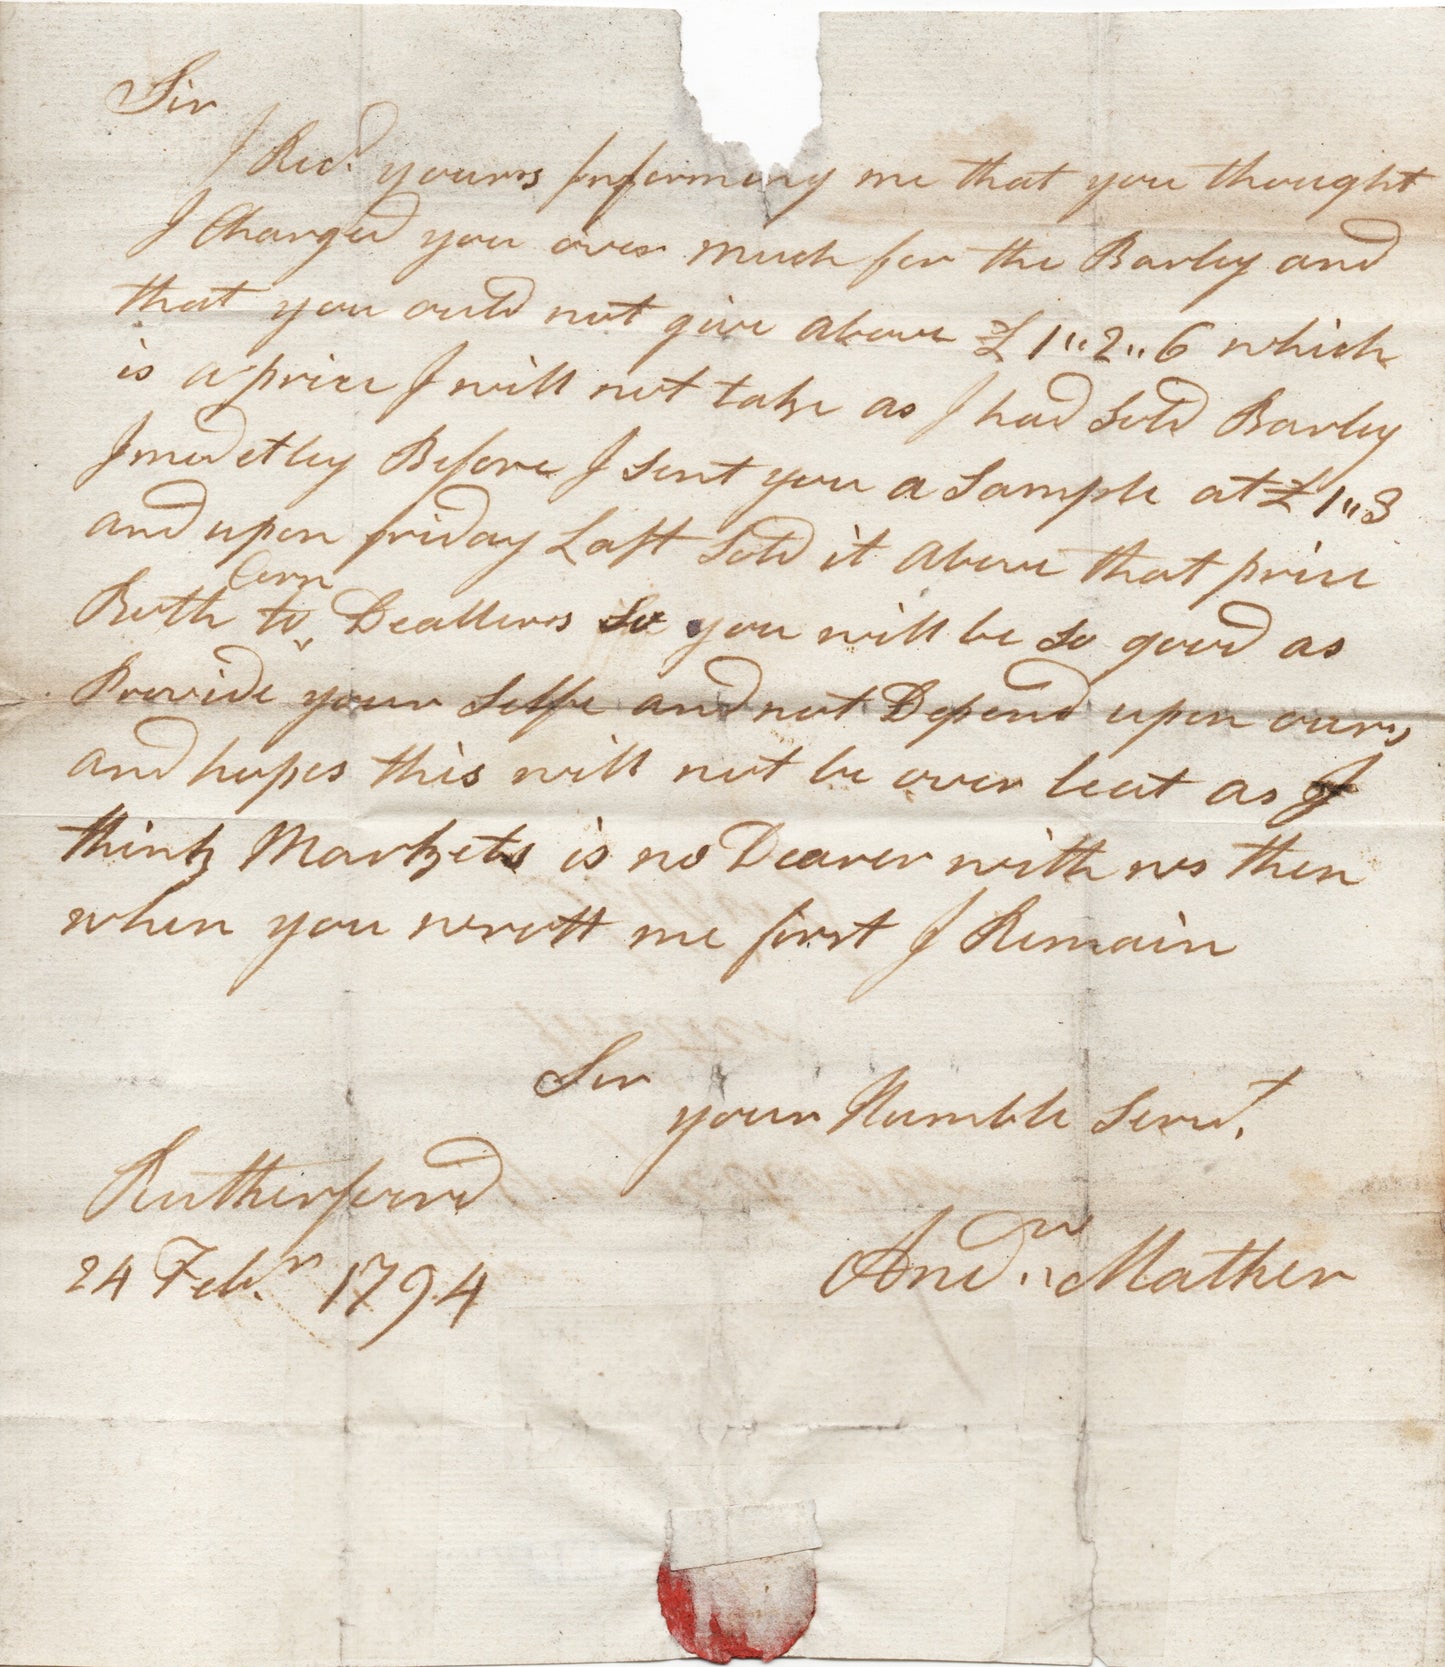 Sir
I Recd. yours Informing me that you thought
I Charged you over much for the Barley and
that you could not give above £1"2"6 which
is a price I will not take as I had sold Barley
Imedetley Before I sent you a sample at £1"3
and upon friday Last sold it above that price
Both to Corn Deallers So you will be so good as
Provide your selfe and not Depend upon ours,
and hopes this will not be over leat as I
think Markets is no Dearer with ws then
when you wrott me first I Remain
Sir
your Humble Servt.
Rutherfoord
24 Febr. 1794
Andw. Mather